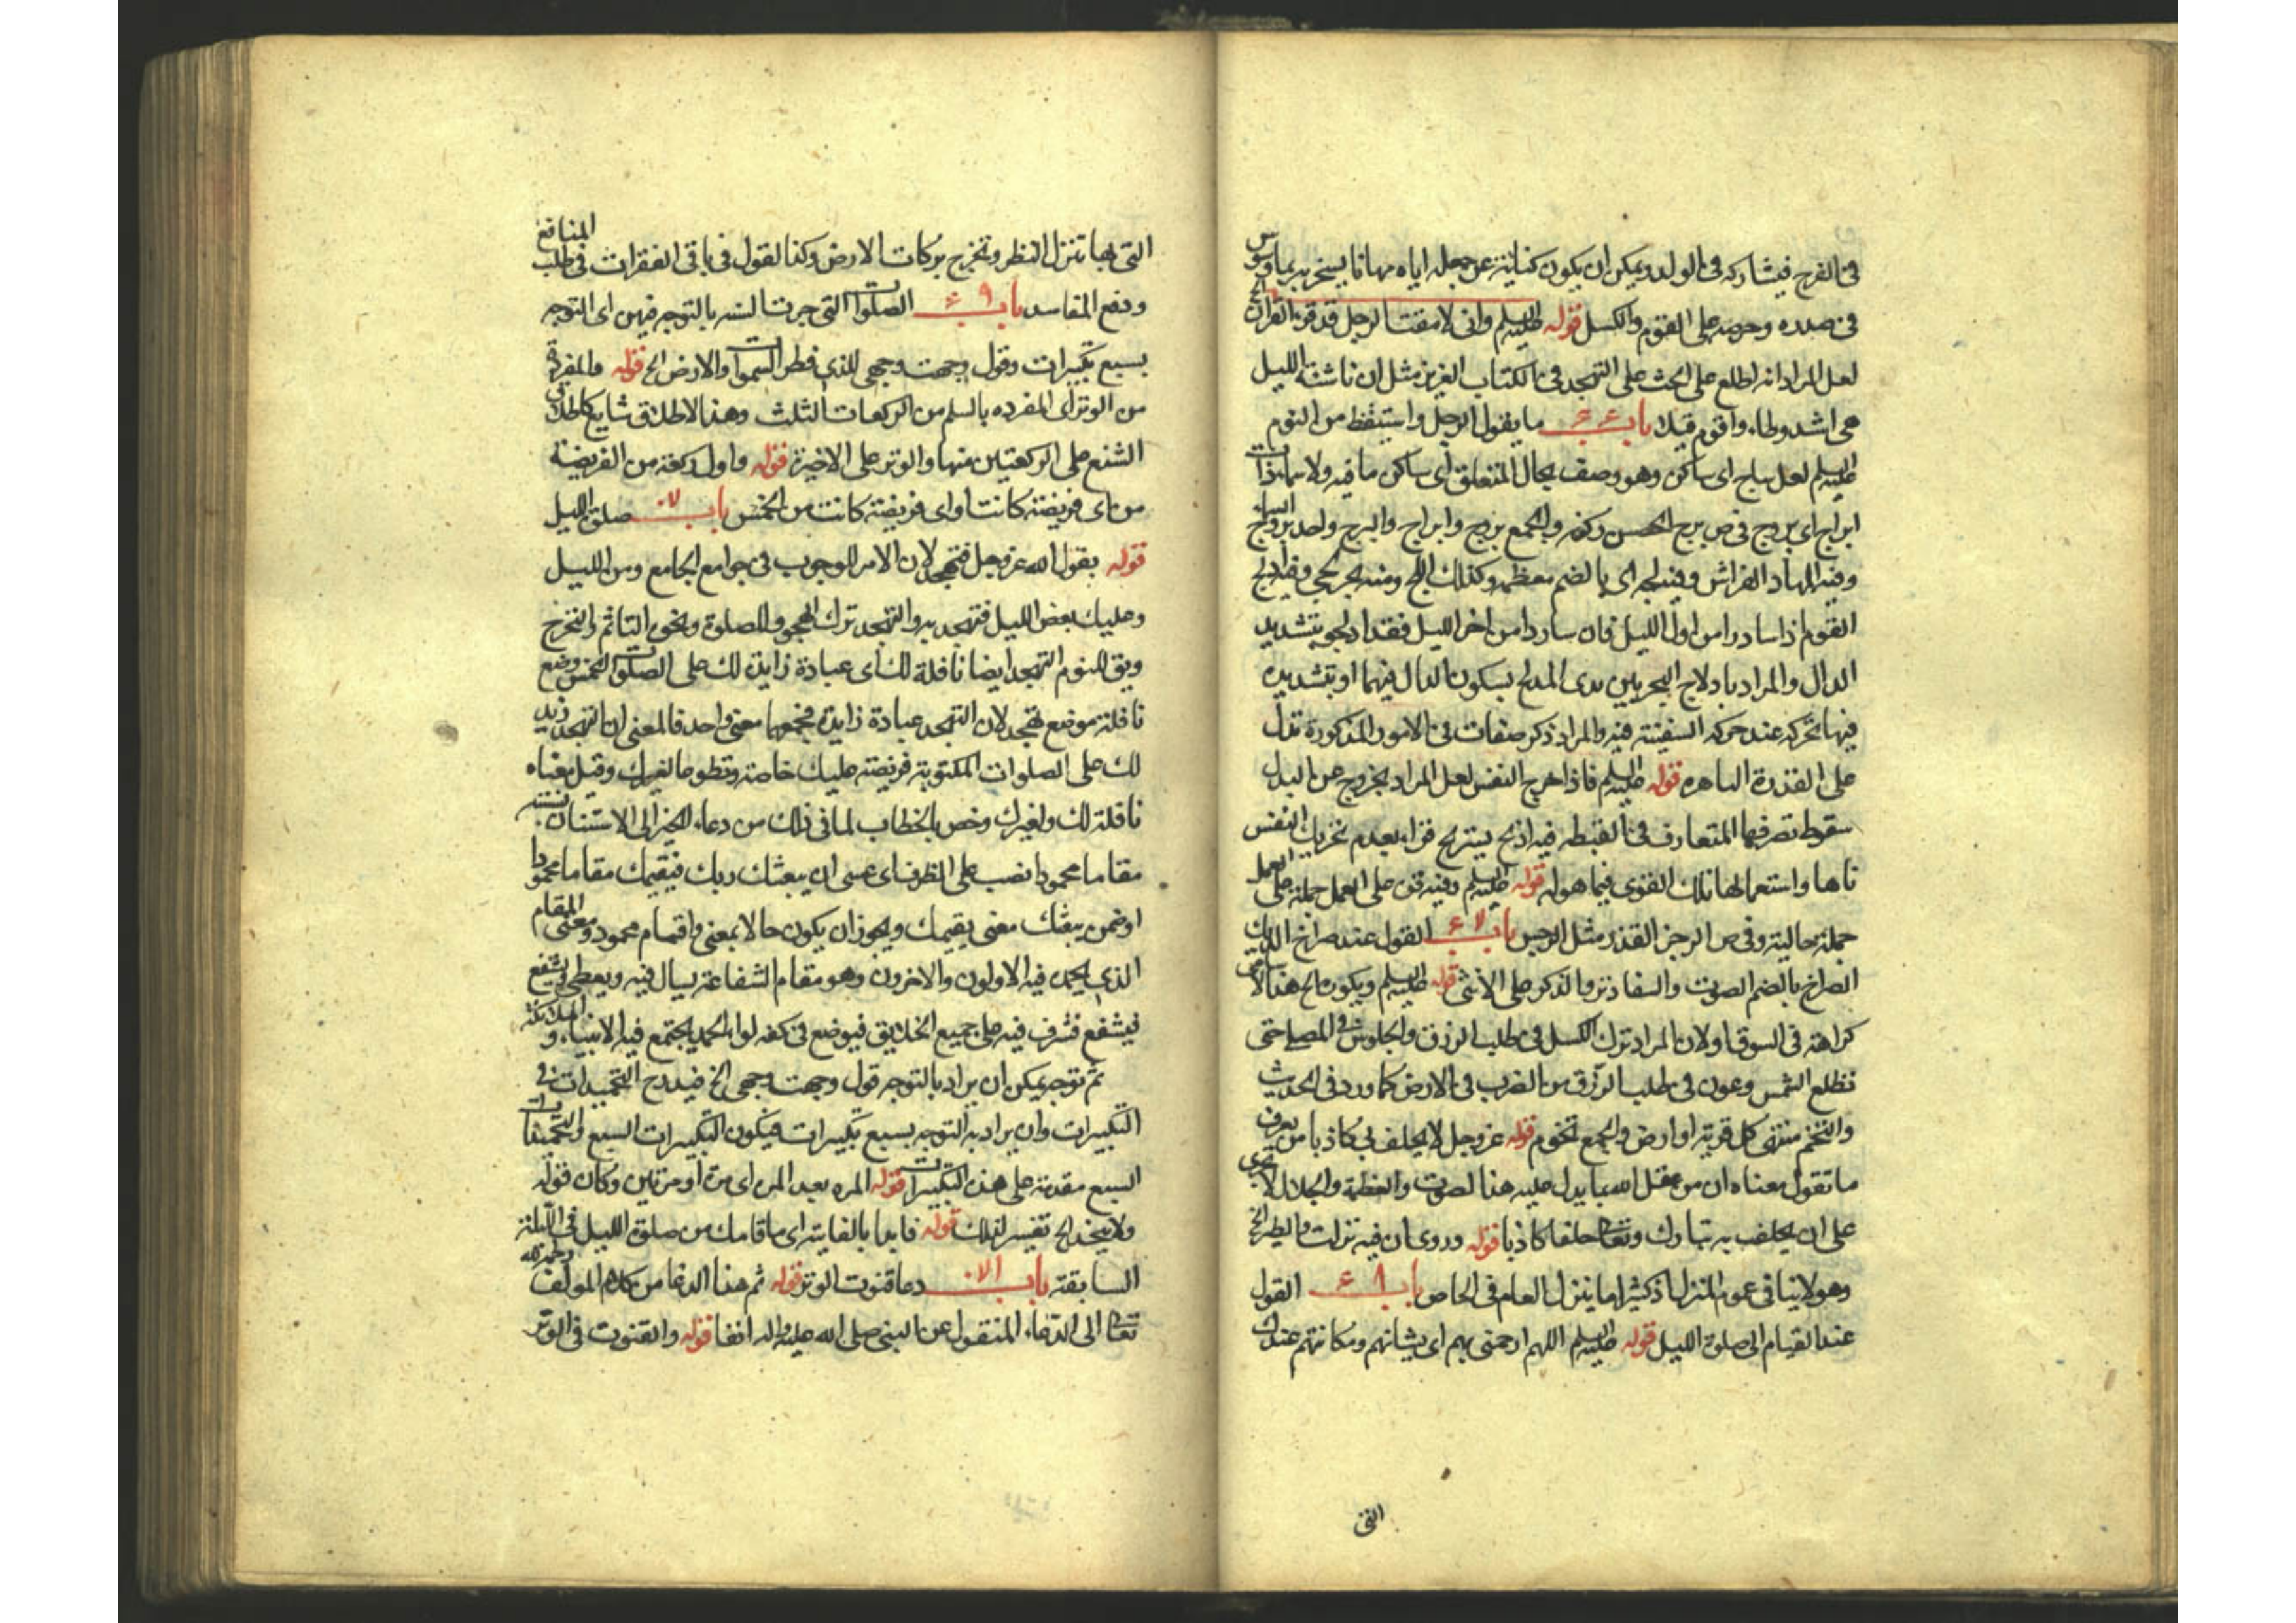 في الفرج فيشاركه في الولد ويمكن ان يكون كناية عن جعله اياه مهانا يسخر به بما وسوس
في صدره وحرصه على النوم والكسل قوله عليه السلم واني لامقت الرجل قد قرء القران الخ
لعل المراد انه اطلع على الحث على التهجد في الكتاب العزيز مثل ان ناشئة الليل
هي اشد وطاء واقوم قيلا باب ما يقول الرجل واستيقظ من النوم
عليه السلم لعل ساج اى ساكن وهو وصف بحال المتعلق اى ساكن ما فيه ولا سماء ذات
ابراج اى بروج في ص برج الحصن ركنه والجمع بروج وابراج والبرج واحد بروج السماء
وفيه المهاد الفراش وفيه لجه اى بالضم معظمه وكذلك اللج ومنه بحر لجي وفيه ادلج
القوم اذا ساروا من اول الليل فان ساروا من اخر الليل فقد ادلجوا بتشديد
الدال والمراد بادلاج البحر بين يدى المدلج بسكون الدال فيهما او بتشديده
فيها تحركه عند حركه السفينة فيه والمراد ذكر صفات في الامور المذكورة تدل
على القدرة الباهره قوله عليه السلم فاذا خرج النفس لعل المراد بخروج عن البدل
سقوط تصرفها المتعارف في اليقظه فيه اذ يستريح بعدم تحريك النفس
ناها واستعمالها تلك القوى فيما هو له قوله عليه السلم وفيه قوى على العمل جملة على العمل
جملة حالية وفي ص الرجز القذر مثل الرجس باب القول عند صراخ الديك
الصراخ بالضم الصوت والسفاد نزو الذكر على الانثى قوله عليه السلم ويكون مالح هذا لا
كراهته في السوق اولان المراد ترك الكسل في طلب الرزق والجلوس في المصلى حتى
تطلع الشمس وعون في طلب الرزق من الضرب في الارض كما ورد في الحديث
والتخم منتهى كل قرية او ارض والجمع تخوم قوله عز وجل لا يحلف بي كاذبا من يعرف
ما تقول معناه ان من عقل الله بما يدل عليه هذا الصوت والعظمة والجلال لا يجرى
على ان يحلف به تبارك وتعالى حلفا كاذبا قوله وروى ان فيه نزلت والطير الخ
وهو لا ينافي عموم المنزل اذ كثيرا ما ينزل العام في الخاص باب القول
عند القيام الى صلوة الليل قوله عليه السلم اللهم ارحمني بهم اى بشانهم ومكانتهم عندك
التي
التي بها تنزل المطر وتخرج بركات الارض وكذا القول في باقي الفقرات في طلب المنافع
ودفع المفاسد باب الصلوات التي جرت السنه بالتوجه فيهن اى التوجه
بسبع تكبيرات وقول وجهت وجهي للذى فطر السموات والارض الخ قوله والمفردة
من الوتر اى المفرده بالسلم من الركعات الثلث وهذا الاطلاق شايع كاطلاق
الشفع على الركعتين منها والوتر على الاخيرة قوله واول ركعة من الفريضة
من اى فريضة كانت او اى فريضة كانت من الخمس باب صلوة الليل
قوله بقول الله عز وجل فتهجد لان الامر للوجوب في جوامع الجامع ومن الليل
وعليك بعض الليل فتهجد به والتهجد ترك الهجود للصلوة ونحوه التاثم والتحرج
ويق للنوم التهجد ايضا نافلة لك اى عبادة زايدة لك على الصلوات الخمس وضع
نافلة موضع تهجد لان التهجد عبادة زايدة فجمعها معنى واحد فالمعنى ان التهجد زيد
لك على الصلوات المكتوبة فريضة عليك خاصة وتطوعا لغيرك وقيل معناه
نافلة لك ولغيرك وخص بالخطاب لما في ذلك من دعاء الغير الى الاستنان بسنته
مقاما محمودا نصب على الظرف اى عسى ان يبعثك ربك فيقيمك مقاما محمودا
او ضمن يبعثك معنى يقيمك ويجوز ان يكون حالا بمعنى ذا مقام محمود ومعنى المقام
الذى يحمده فيه الاولون والاخرون وهو مقام الشفاعة يسال فيه ويعطى ويشفع
فيشفع فشرف فيه على جميع الخلايق فيوضع في كفه لواء الحمد يجتمع فيه الانبياء و الملائكة
ثم توجه يمكن ان يراد بالتوجه قول وجهت وجهي الخ فيدرج التحميدات في
التكبيرات وان يراد به التوجه بسبع تكبيرات فيكون التكبيرات السبع والتحميدات
السبع مقدمة على هذه التكبيرات قوله المره بعد المره اى مرة او مرتين وكان قوله
ولا تفسير لذلك قوله فابدا بالفايته اى ما قامك من صلوة الليل في الليلة
السابقة باب دعا قنوت الوتر قوله ثم هذا الدعا من كلام المولف رحمه الله
تعالى الى الدعاء المنقول عن النبي صلى الله عليه واله انفا قوله والقنوت في الوتر